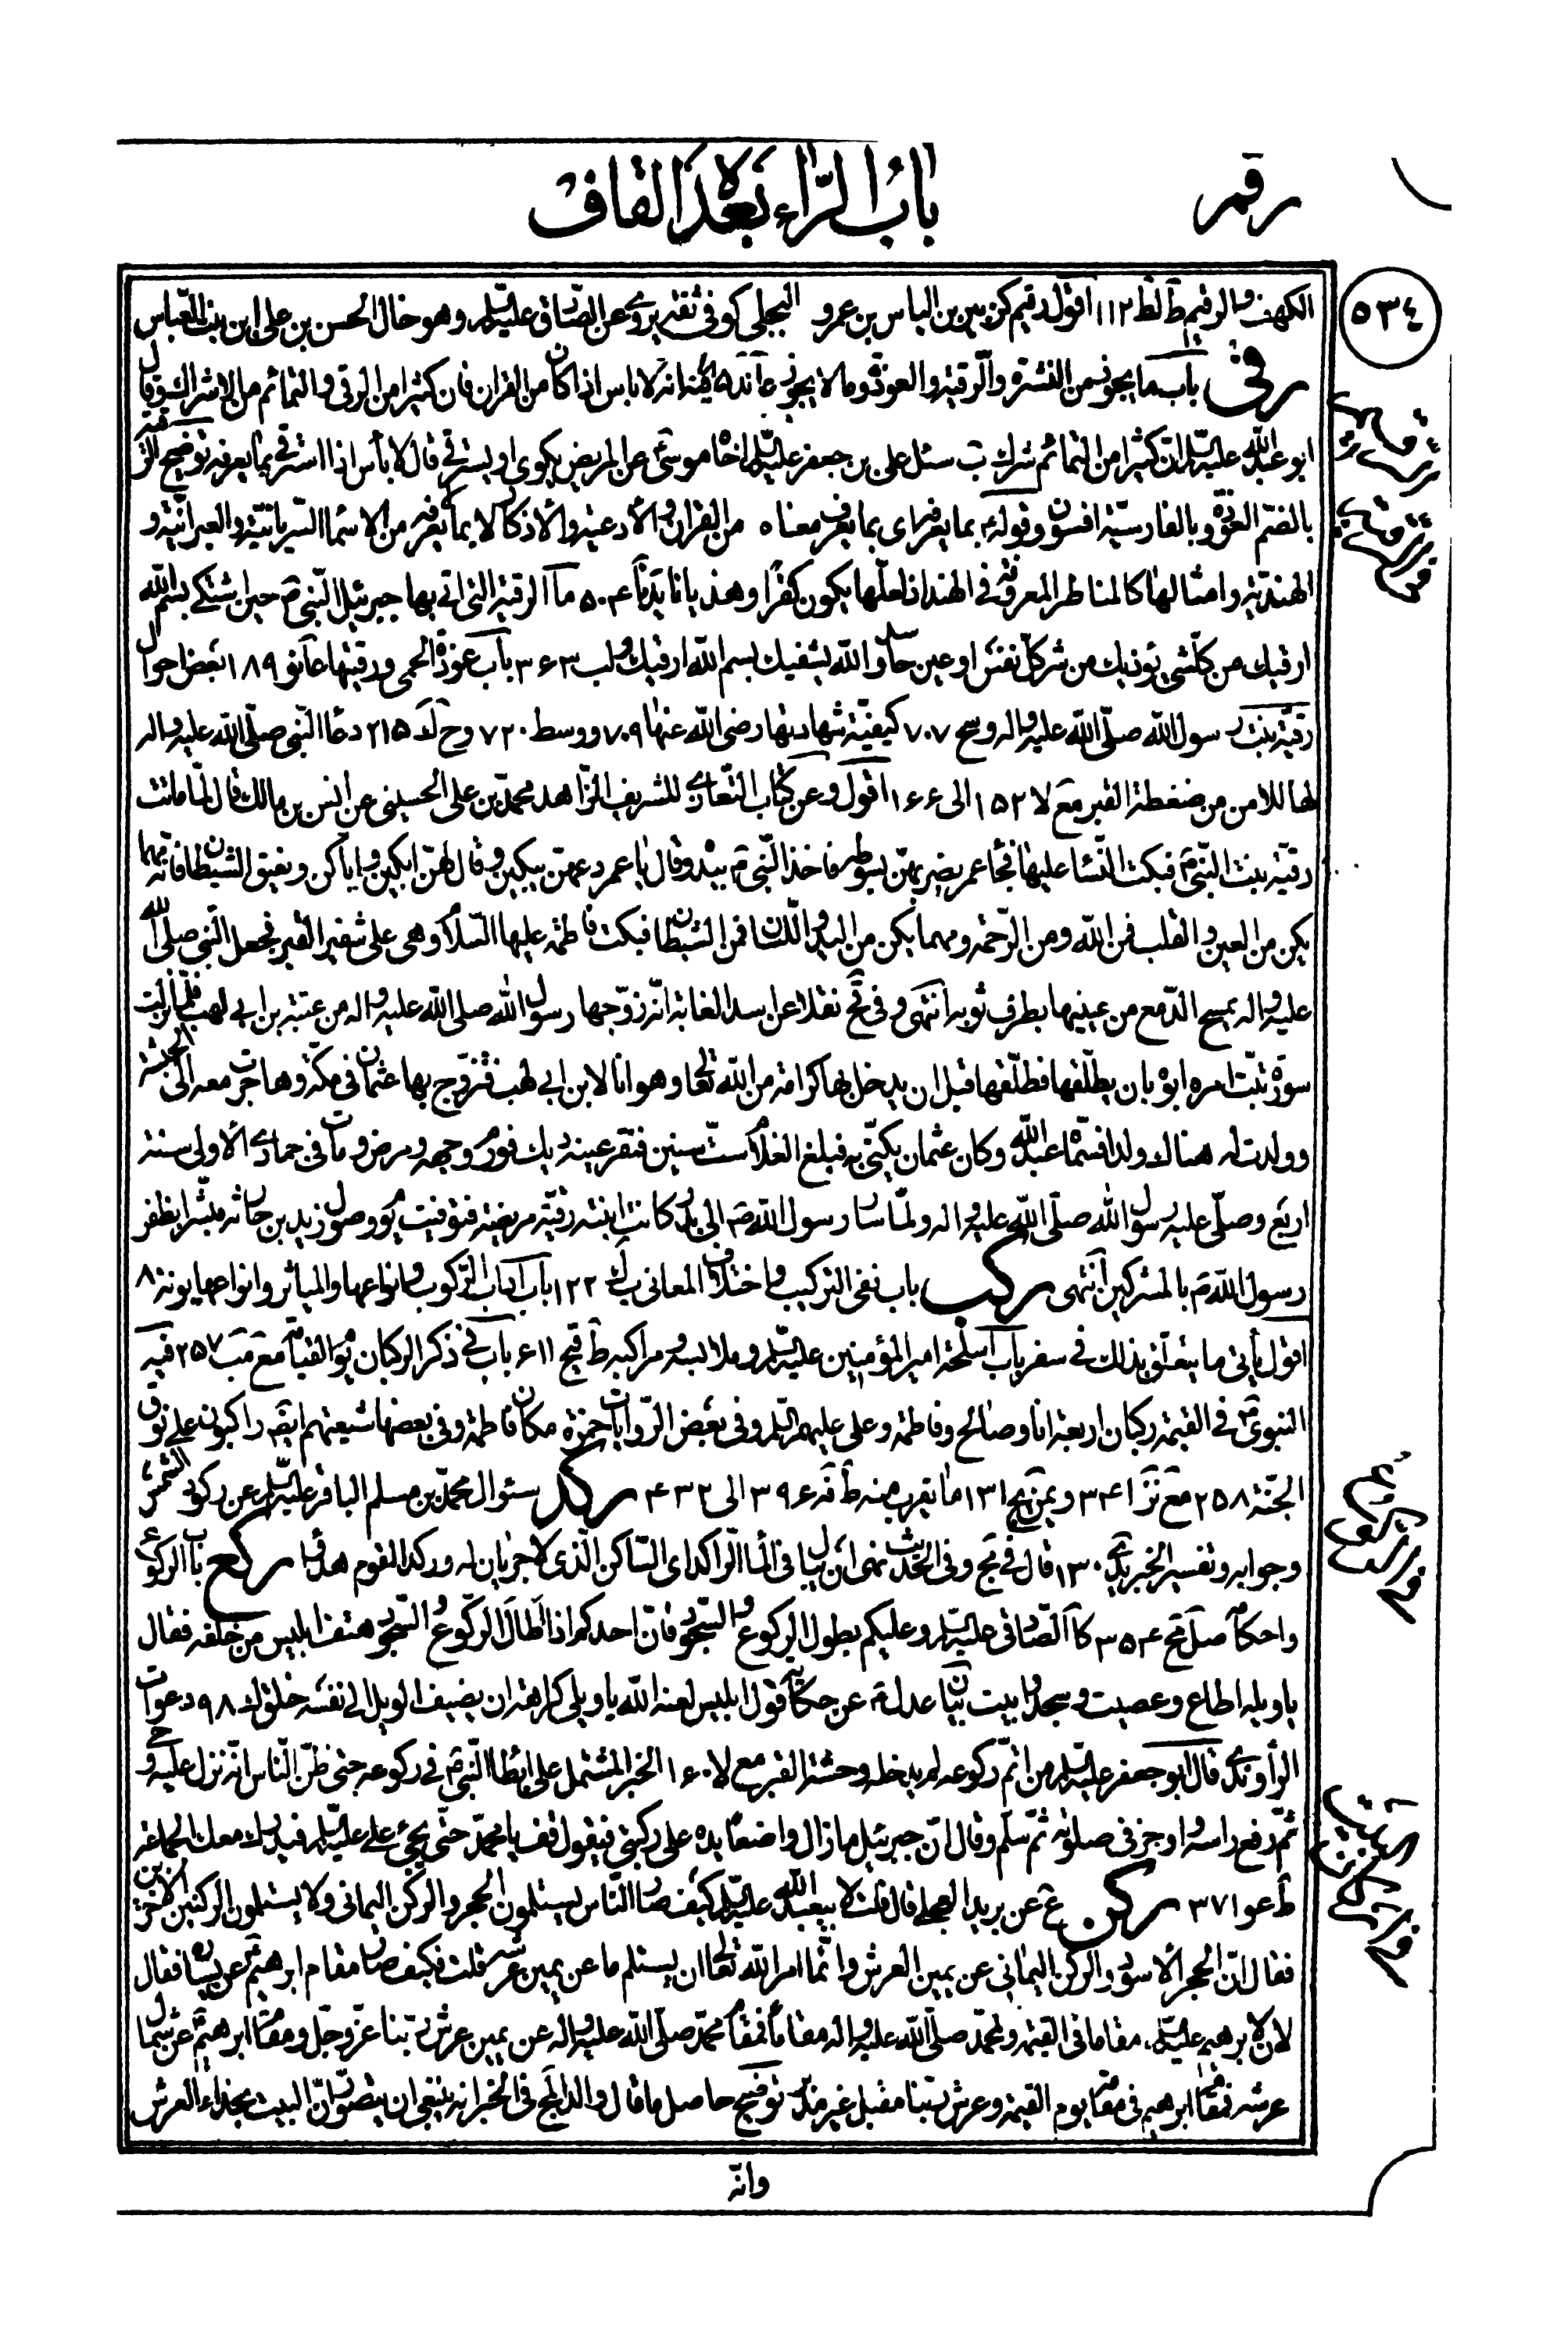 رقم
باب الراء بعد القاف
٥٣٤
الكهف والرقيم ط لط ١١٢ اقول رقيم كزبير بن الياس بن عمرو البجلي كوفي ثقة يروي عن الصادق عليه السلم وهو خال الحسن بن علي ابن بنت الياس
رقى باب ما يجوز من النشرة والرقية والعوذة وما لا يجوز انه لا باس اذا كان من القران فان كثيرا من الرقى والتمائم من الاشراك وقال
ابو عبدالله عليه السلم ان كثيرا من التمائم شرك ب سئل علي بن جعفر عليه السلم اخاه موسى عن المريض يكوى او يسترقى قال لا بأس اذا استرقى بما يعرفه توضيح الرقية
بالضم العوذة وبالفارسية افسون وقوله بما يعرفه اى بما يعرف معناه من القران والأدعية والأذكار لا بما لا يعرفه من الاسماء السريانية والعبرانية و
الهندية وامثالها كالمناطر المعروفة في الهند اذ لعلها يكون كفرا وهذيانا ٥٠٤ ما الرقية التي اتى بها جبرئيل النبي ص حين اشتكى بسم الله
ارقيك من كل شي يؤذيك من شر كل نفس او عين حاسد والله يشفيك بسم الله ارقيك ٣٦٣ باب عوذة الحمى ورقيتها ١٨٩ بعض احوال
رقية بنت رسول الله صلى الله عليه واله و سح ٧٠٧ كيفية شهادتها رضى الله عنها ٧٠٩ ووسط ٧٢٠ وح لا ٢١٥ دعاء النبي صلى الله عليه واله
لها للامن من ضغطة القبر مع لا ١٥٢ الى ١٦٦ اقول وعن كتاب التعازى للشريف الزاهد محمد بن علي الحسيني عن انس بن مالك قال لما ماتت
رقية بنت النبي ص فبكت النساء عليها فجاء عمر يضربهن بسوطه فاخذ النبي ص بيده وقال يا عمر دعهن يبكين وقال لهن ابكين واياكن ونعيق الشيطان فانه مهما
يكن من العين والقلب فمن الله ومن الرحمة ومهما يكن من اليد واللسان فمن الشيطان فبكت فاطمة عليها السلام وهي على شفير القبر فجعل النبي صلى الله
عليه واله يمسح الدمع من عينيها بطرف ثوبه انتهى وفي نقلا عن اسد الغابة انه زوجها رسول الله صلى الله عليه واله من عتبة بن ابي لهب فلما نزلت
سورة تبت امره ابوه بان يطلقها فطلقها قبل ان يدخل بها كرامة من الله تعالى وهوانا لابن ابي لهب فتزوج بها عثمان في مكة وهاجرت معه الى الحبشة
وولدت له هناك ولدا فسماه عبدالله وكان عثمان يكنى به فبلغ الغلام ست سنين فنقر عينه ديك فورم وجهه ومرض ومات في جمادى الاولى سنة
اربع وصلى عليه رسول الله صلى الله عليه واله ولما سار رسول الله ص الى بدر كانت ابنته رقية مريضة فتوفيت يوم وصول زيد بن حارثه مبشرا بظفر
رسول الله ص بالمشركين انتهى ركب باب نفي التركيب واختلاف المعاني ب ك ١٢٢ باب اداب الركوب وانواعها والمياثر وانواعها يو نة ٨
اقول يأتي ما يتعلق بذلك في سفر باب اسلحة امير المؤمنين عليه السلم وملابسه ومراكبه ط قيح ٦١١ باب في ذكر الركبان يوم القيامة مع مب ٢٥٧ فيه
النبوي ص في القيمة ركبان اربعة انا وصالح وفاطمة وعلي عليهم السلم وفي بعض الروايات حمزة مكان فاطمة وفي بعضها شيعتهم ايضا راكبون على نوق
الجنة ٢٥٨ مع نز ٣٤١ ويمن يج ١٣١ ما يقرب منه ط فه ٣٩٦ الى ٤٣٢ ركد سئوال محمد بن مسلم الباقر عليه السلم عن ركود الشمس
وجوابه وتفسير الخبر ١٣٠ قال في مج وفي الحديث نهى ان يبال في الماء الراكد اى الساكن الذى لا جريان له وركد القوم هدأوا ركع باب الركوع
واحكامه صل مح ٣٥٤ كا الصادق عليه السلم وعليكم بطول الركوع والسجود فان احدكم اذا اطال الركوع والسجود هتف ابليس من خلفه فقال
يا ويله اطاع وعصيت وسجد وابيت بيان عدل ع عن حكاية قول ابليس لعنه الله يا ويلي كراهة ان يضيف الويل الى نفسه خلق ك ٩٨ دعوات
الراوندي قال ابو جعفر عليه السلم من اتم ركوعه لم يدخله وحشة القبر مع لا ١٦٠ الخبر المشتمل على ابطاء النبي ص في ركوعه حتى ظن الناس انه نزل عليه وحي و
ثم رفع راسه واوجز في صلوته ثم سلم وقال ان جبرئيل ما زال واضعا يده على ركبتي فيقول قف يا محمد حتى يجئ علي عليه السلم فيدرك معك الجماعة
ط عو ٣٧١ ركن ع عن بريد العجلي قال قلت لابيعبدالله عليه السلم كيف صار الناس يستلمون الحجر والركن اليماني ولا يستلمون الركنين الاخرين
فقال ان الحجر الاسود والركن اليماني عن يمين العرش وانما امر الله تعالى ان يستلم ما عن يمين عرشه قلت فكيف صار مقام ابرهيم عن يساره فقال
لان لابرهيم عليه السلم مقاما في القيمة ولمحمد صلى الله عليه واله مقاما فمقام محمد صلى الله عليه واله عن يمين عرش ربنا عز وجل ومقام ابرهيم عن شمال
عرشه فمقام ابرهيم في مقامه يوم القيمة وعرش ربنا مقبل غير مدبر توضيح حاصل ما قال والدالمج في الخبر انه ينبغي ان يتصور ان البيت بحذاء العرش
وانه